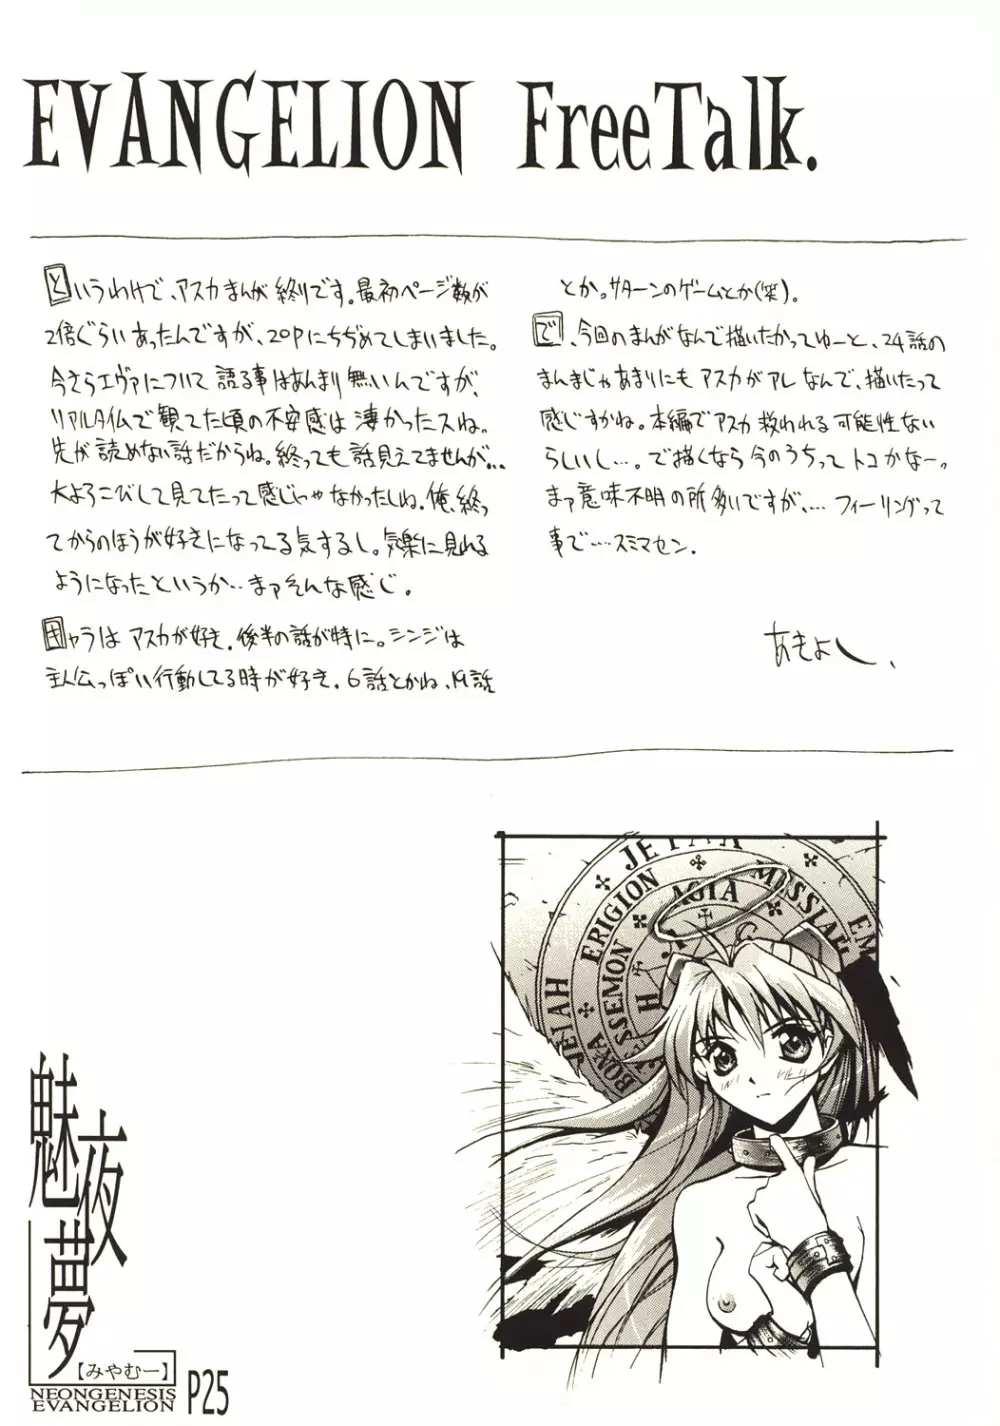 EVANGELION FreeTalk.
というわけで、アスカまんが終りです。最初ページ数が
2倍ぐらいあったんですが、20Pにちぢめてしまいました。
今さらエヴァについて語る事はあんまり無いんですが、
リアルタイムで観てた頃の不安感は凄かったスね。
先が読めない話だからね。終っても話見えてませんが…
大よろこびして見てたって感じじゃなかったしね。俺、終っ
てからのほうが好きになってる気するし。気楽に見れる
ようになったというか…まァそんな感じ。
キャラはアスカが好き。後半の話が特に。シンジは
主人公っぽい行動してる時が好き。6話とかね、19話
とか。サターンのゲームとか(笑)。
で、今回のまんがなんで描いたかってゆーと、24話の
まんまじゃあまりにもアスカがアレなんで、描いたって
感じすかね。本編でアスカ救われる可能性ない
らしいし…。で描くなら今のうちってトコかなー。
まァ意味不明の所多いですが、…フィーリングって
事で…スミマセン.
あきよし、
JEIAH
ERIGION
AGIA
MESSIAH
EM
JEIAH
BOXA
SSEMON
H
G
魅夜夢
【みやむー】
NEONGENESIS
EVANGELION
P25